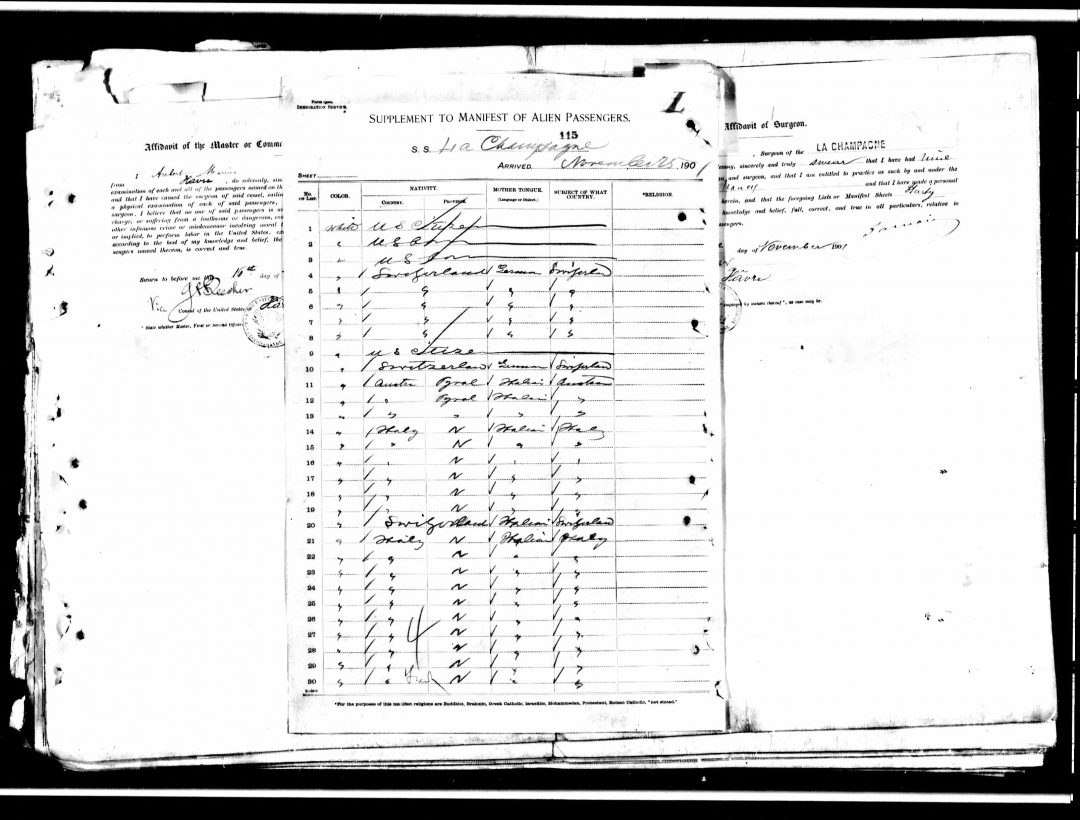 Form 1500.
IMMIGRATION SERVICE.
L
SUPPLEMENT TO MANIFEST OF ALIEN PASSENGERS.
115
S. S. La Champagne
ARRIVED, November 25, 190
SHEET
No. ON LIST. COLOR. NATIVITY. MOTHER TONGUE. (Language or Dialect.) SUBJECT OF WHAT COUNTRY. *RELIGION.
COUNTRY. PROVINCE.
1 White U S
2 " U S
3 " U S
4 " Switzerland German Switzerlan
5 " " " "
6 " " " "
7 " " " "
8 " " " "
9 " U S Citize
10 " Switzerlan German Switzerlan
11 " Austria Tyrol Italian Austrian
12 " " Tyrol Italian "
13 " " " " "
14 " Italy N Italian Italy
15 " " N " "
16 " " N " "
17 " " N " "
18 " " N " "
19 " " N " "
20 " Switzerland Italian Switzerland
21 " Italy N Italian Italy
22 " " N " "
23 " " N " "
24 " " N " "
25 " " N " "
26 " " N " "
27 " " N " "
28 " " N " "
29 " " N " "
30 " " N " "
*For the purposes of this manifest religions are Buddhist, Brahmin, Greek Catholic, Israelite, Mohammedan, Protestant, Roman Catholic, "not stated."
Affidavit of the Master or Comm
I,
from Havre, do solemnly, sinc
examination of each and all of the passengers named on the
and that I have caused the surgeon of said vessel, sailin
a physical examination of each of said passengers,
surgeon, I believe that no one of said passengers is an
charge, or suffering from a loathsome or dangerous, con
other infamous crime or misdemeanor involving moral t
or implied, to perform labor in the United States,
according to the best of my knowledge and belief, the
sengers named therein, is correct and true.
Sworn to before me this 16th day of
Vice Consul of the United States
* State whether Master, First or Second Officer
Affidavit of Surgeon.
, Surgeon of the LA CHAMPAGNE
sincerely and truly swear that I have had nine
and surgeon, and that I am entitled to practice as such by and under the
and that I have made a personal
herein, and that the foregoing Lists or Manifest Sheets
knowledge and belief, full, correct, and true in all particulars, relative to
sengers.
day of November 1901
Hâvre
employed by owners thereof", as case may be.